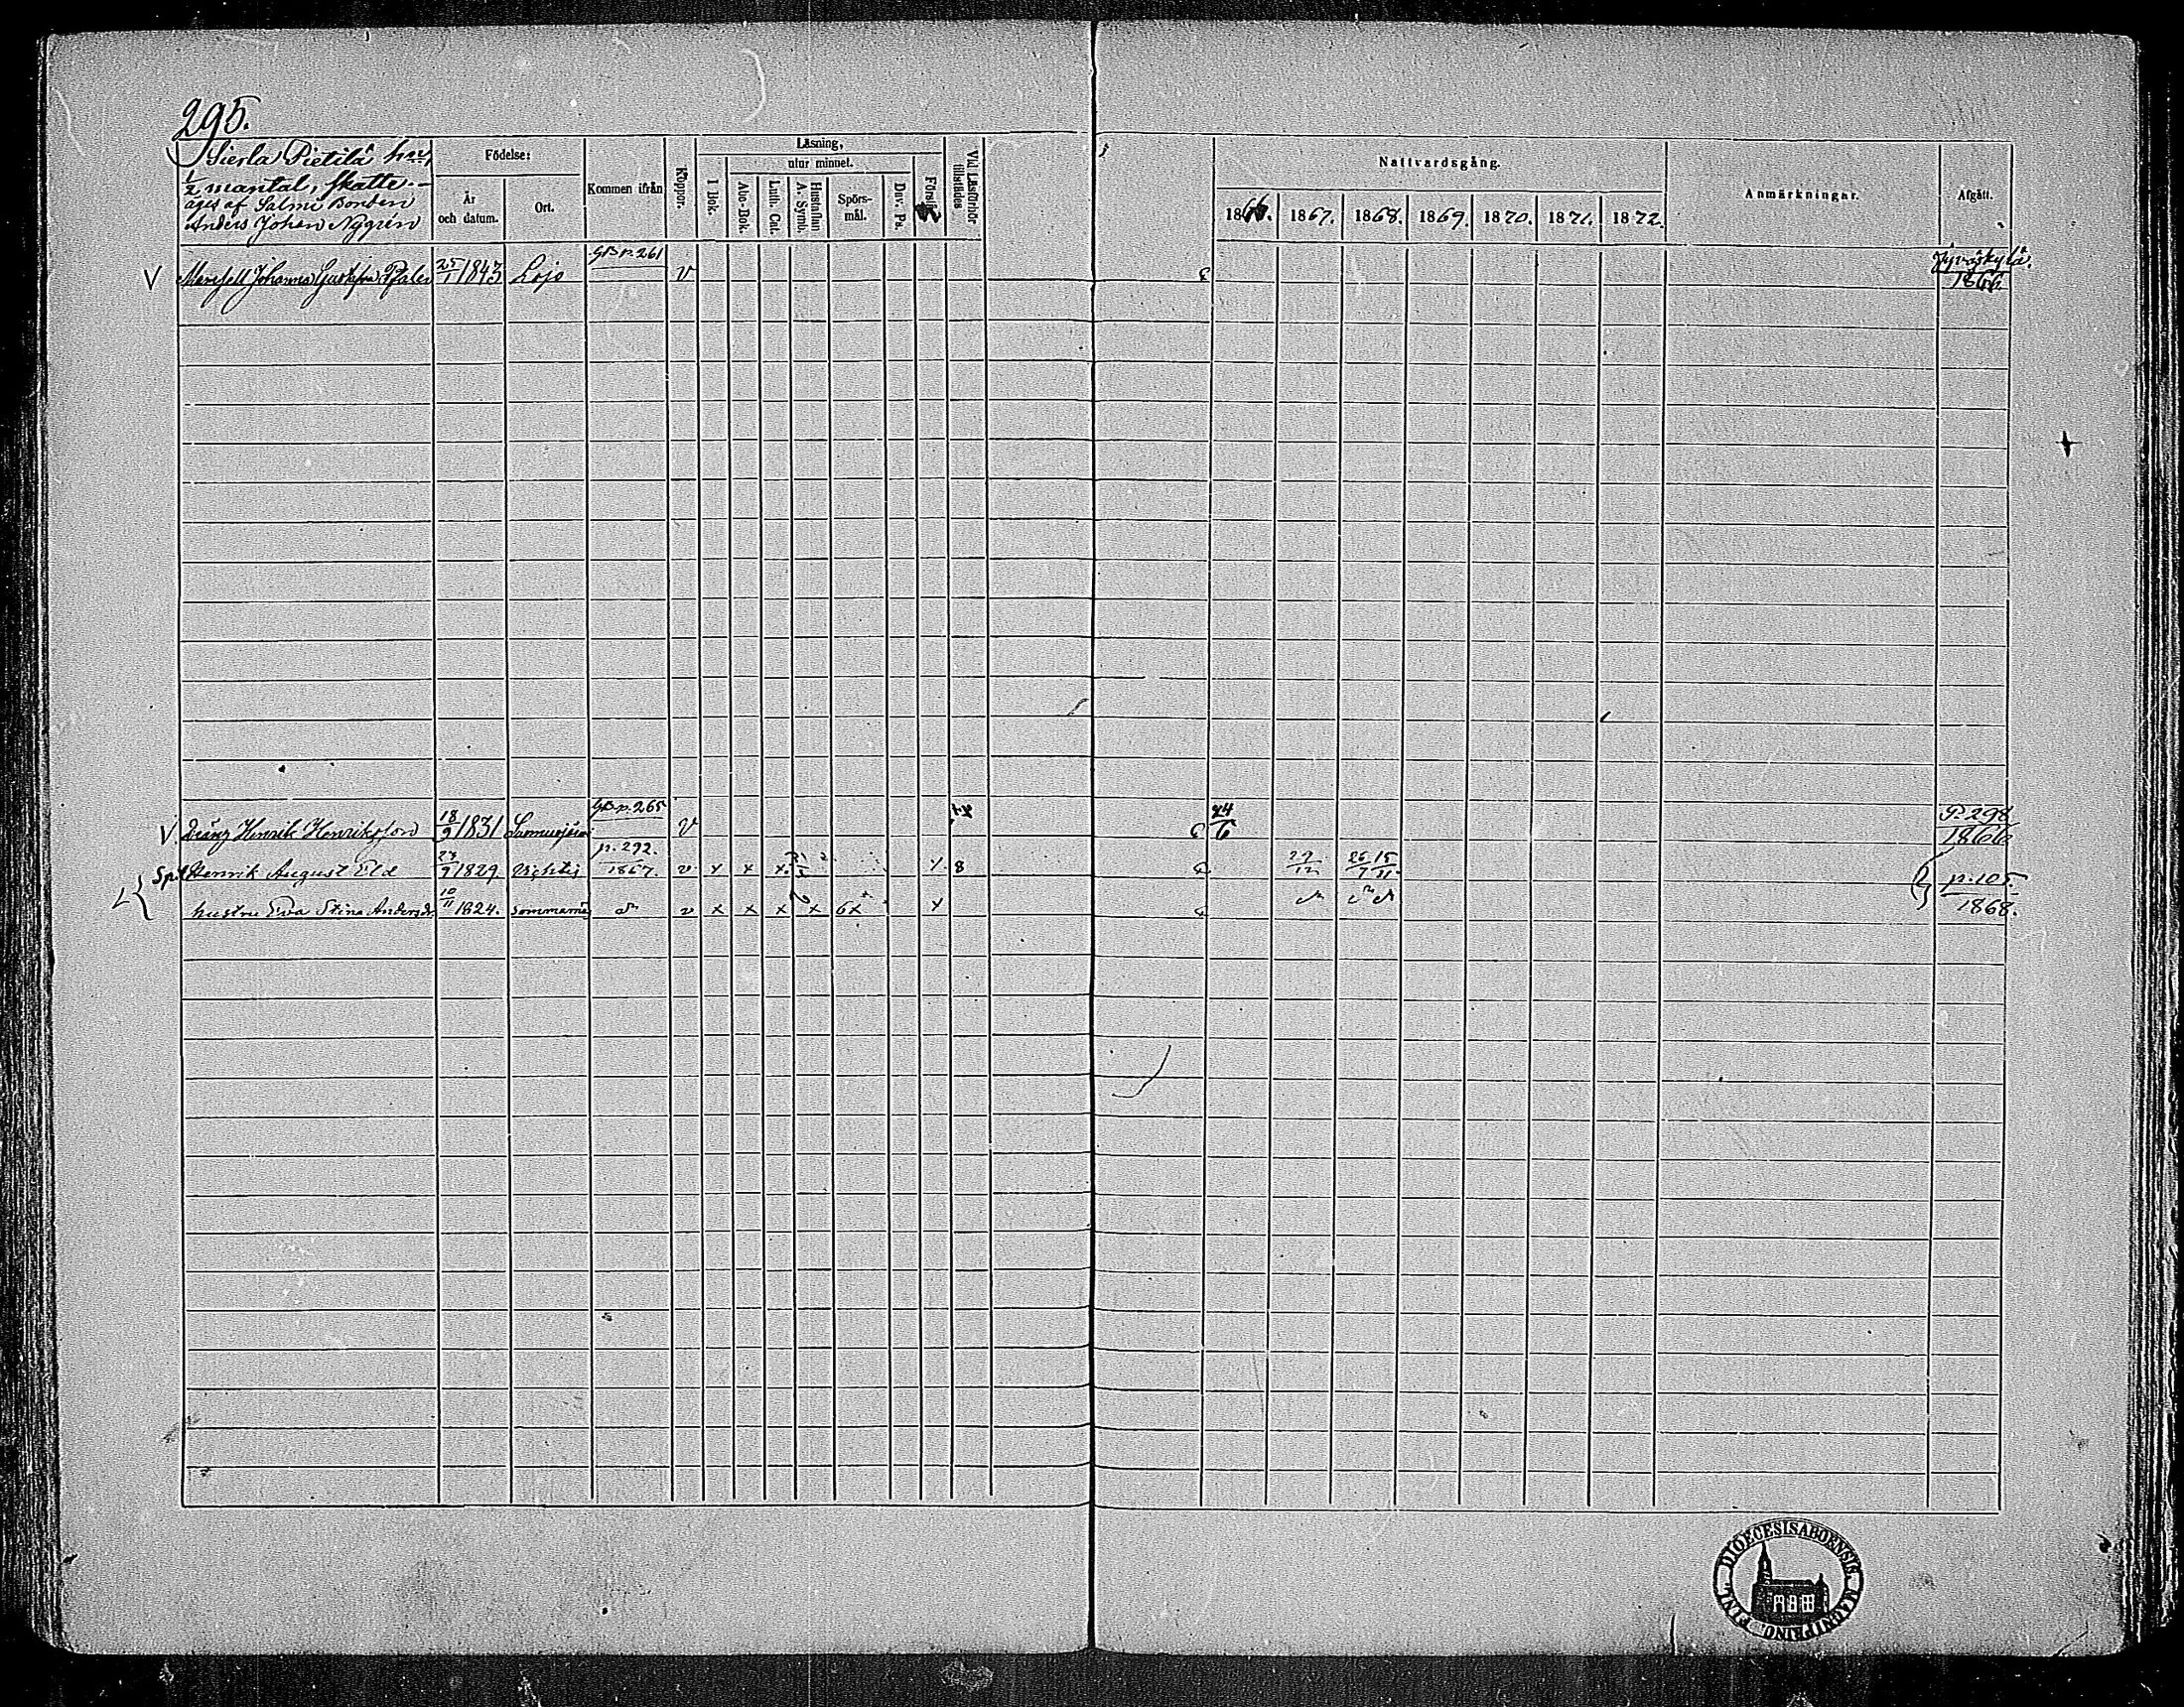 295.
Sierla Pietilä
1/2 mantal, skatte.
äges af Salmi Bonden
Anders Johan Nygrén
Födelse:
År och datum.
Ort.
Kommen ifrån
Koppor.
Läsning,
I Bok.
utur minnet.
Abc-Bok.
Luth. Cat.
Hustaflan A. Symb.
Spörs-mål.
Dav. Ps.
Förstå
Vid Läsförhör tillstädes
Nattvardsgång.
1866. 1867. 1868. 1869. 1870. 1871. 1872.
Anmärkningar.
Afgått.
V Johanna Gustafva 25/1 1843 Lojo GB p. 261 v Jyväskylä. 1866
V. Dräng Henrik Henriksson 18/9 1831 GB p. 265 v 24/6 P. 298 1866
Henrik August Eld 23/9 1829 Vichtis p. 292. 1867. v x x x 8 29/12 26/7 15/11
hustru Eva Stina Andersdr 10/11 1824. v x x x x 6x x p. 105. 1868.
DIOECESIS ABOENSIS. MAGNI PRINC. FINL.